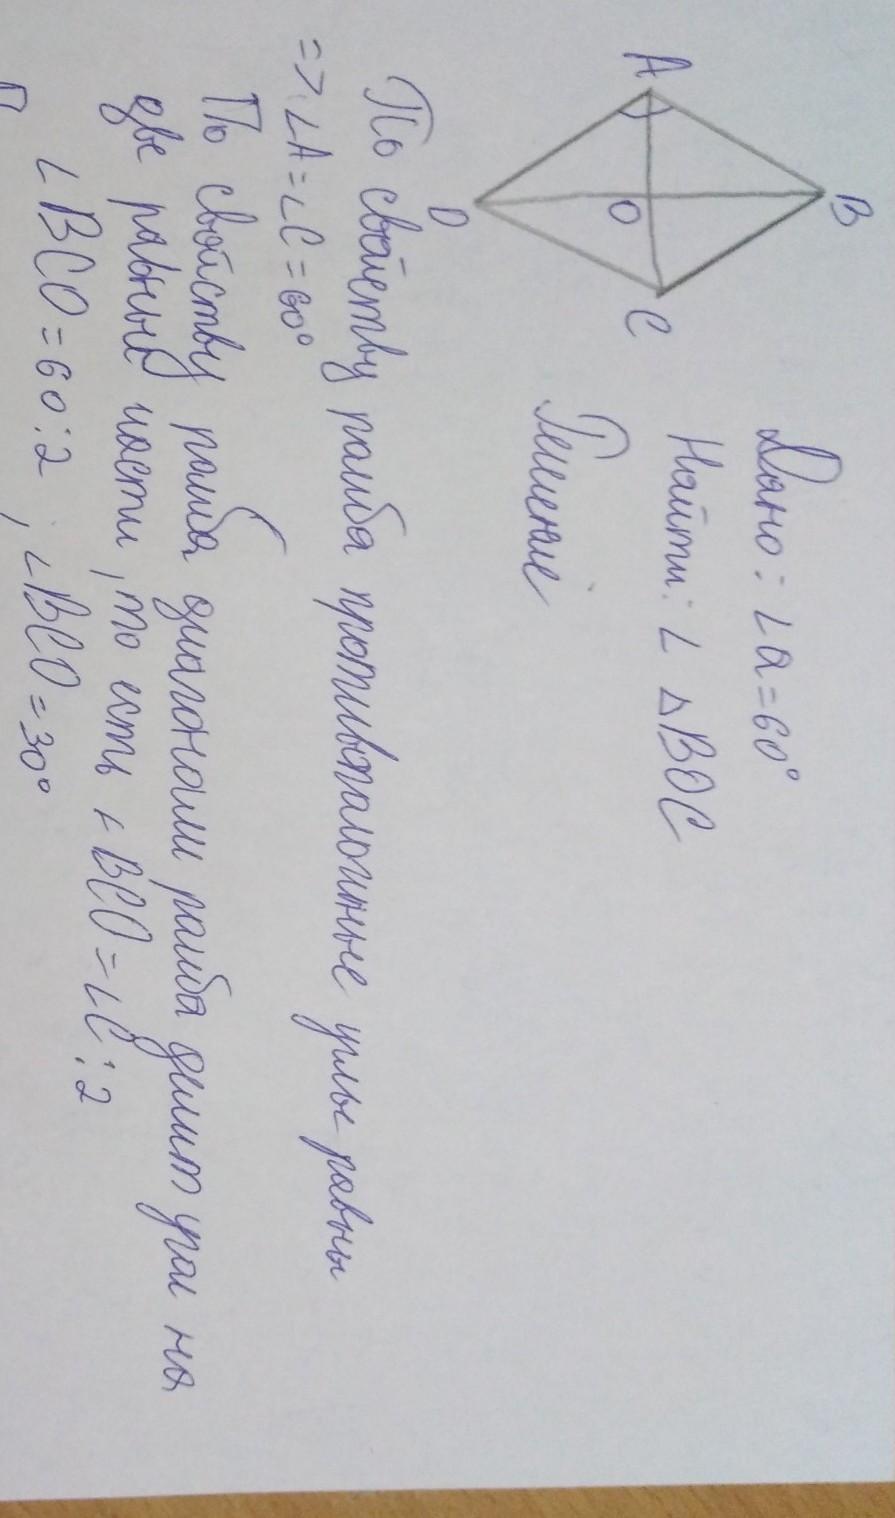 A
B
C
D
O
Дано: ∠a=60°
Найти: ∠ △BOC
Решение
По свойству ромба противоположные углы равны
=> ∠A=∠C=60°
По свойству ромба диагонали ромба делит угол на
две равные части, то есть ∠BCO=∠C:2
∠BCO=60:2, ∠BCO=30°
П